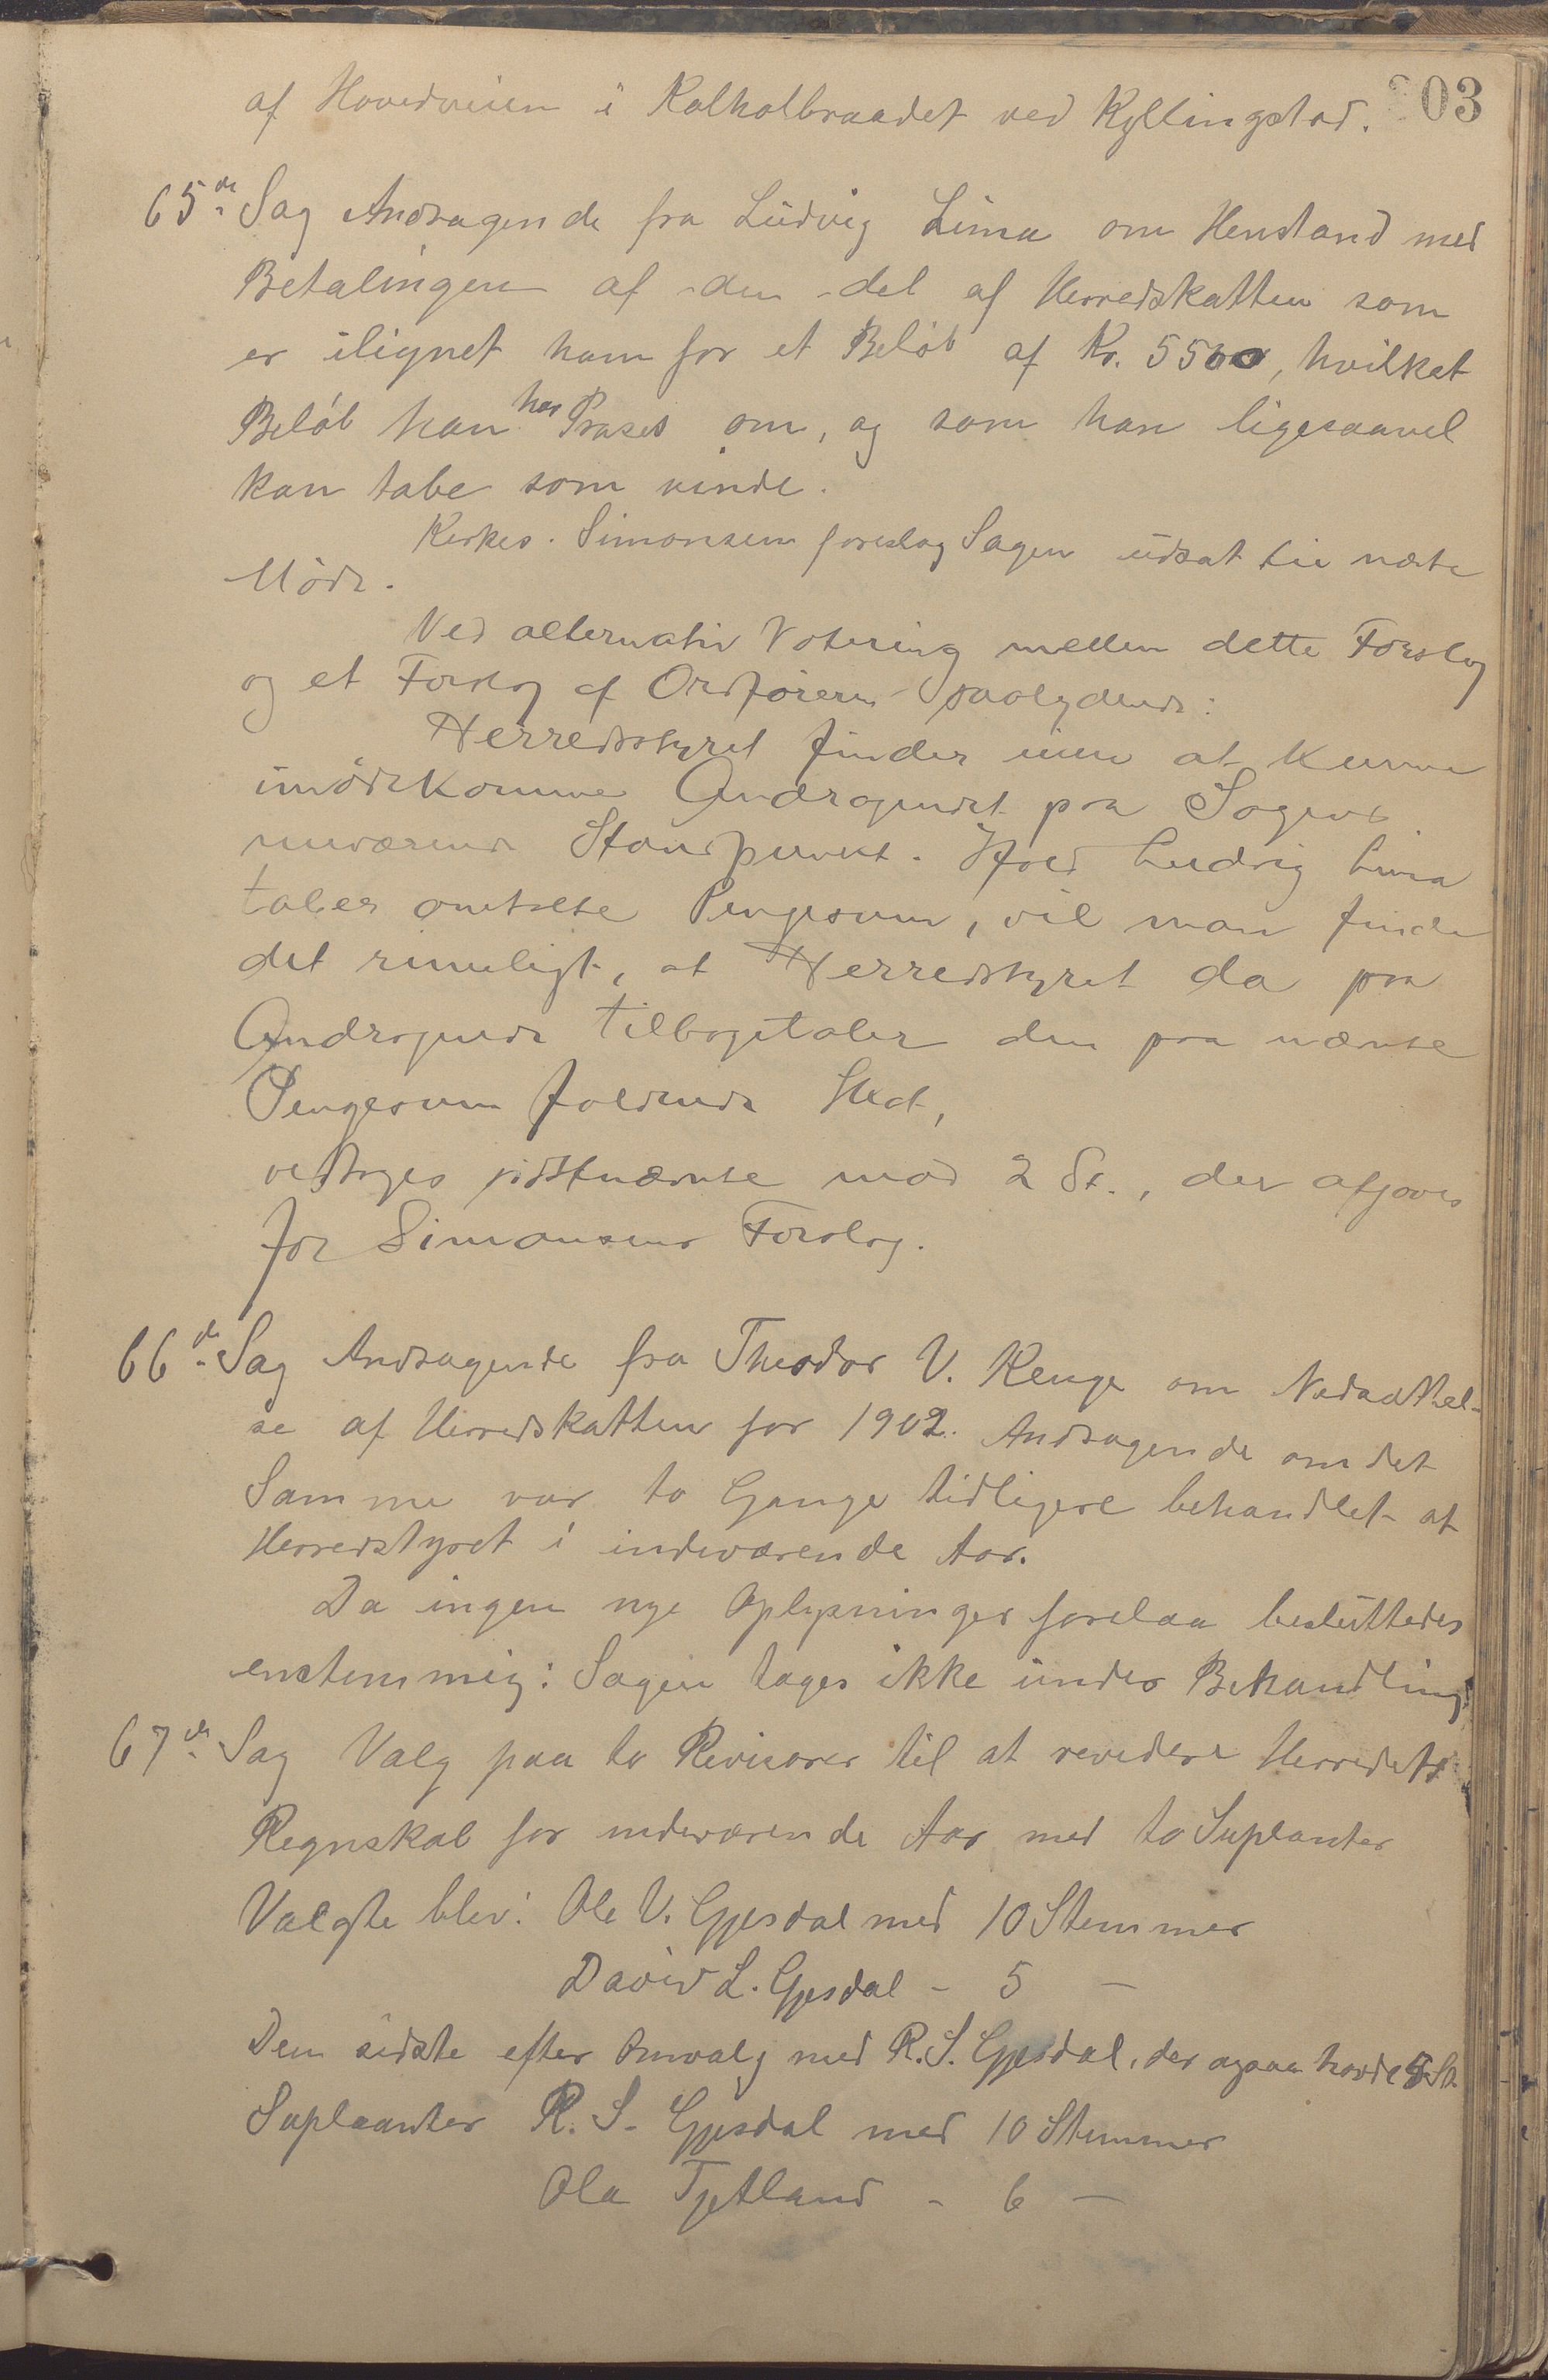 03
af Hovedveien i Kalholbraadet ved Kyllingstad.
65de Sag Andragende fra Ludvig Lima om Henstand med
Betalingen af den del af Herredskatten som
er ilignet ham for et Beløb af Kr. 5500, hvilket
Beløb han har Proses om, og som han ligesaavel
kan tabe som vinde.
Kirkes. Simonsen foreslog Sagen udsat til næste
Møde.
Ved alternativ Votering mellem dette Forslag
og et Forslag af Ordføreren saalydende:
Herredsstyret finder ikke at kunne
imødekomme Andragendet paa Sagens
nuværende Standpunkt. Ifald Ludvig Lima
taber omtalte Pengesum, vil man finde
det rimeligt, at Herredstyret da paa
Andragende tilbagetaler den paa nævnte
Pengesum faldende Skat,
vedtoges sidstnævnte mod 2 St., der afgaves
for Simonsens Forslag.
66de Sag Andragende fra Theodor V. Kenge om Nedsættel-
se af Herredskatten for 1902. Andragende om det
Samme var to Gange tidligere behandlet af
Herredstyret i indeværende Aar.
Da ingen nye Oplysninger forelaa besluttedes
enstemmig: Sagen tages ikke under Behandling.
67de Sag Valg paa to Revisorer til at revidere Herredets
Regnskab for indeværende Aar med to Suplanter
Valgte blev: Ole V. Gjesdal med 10 Stemmer
David L. Gjesdal - 5 —
Den sidste efter Omvalg med R. S. Gjesdal, der ogsaa havde 5 St.
Suplanter R. S. Gjesdal med 10 Stemmer
Ola Tjetland - 6 —